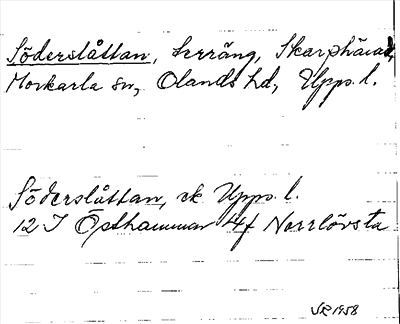 Söderslåttan, terräng, Skarphärad,
Morkarla sn, Olands hd, Upps. l.
Söderslåttan, ek Upps. l.
12 I Östhammar 4f Norrlövsta
SR 1958